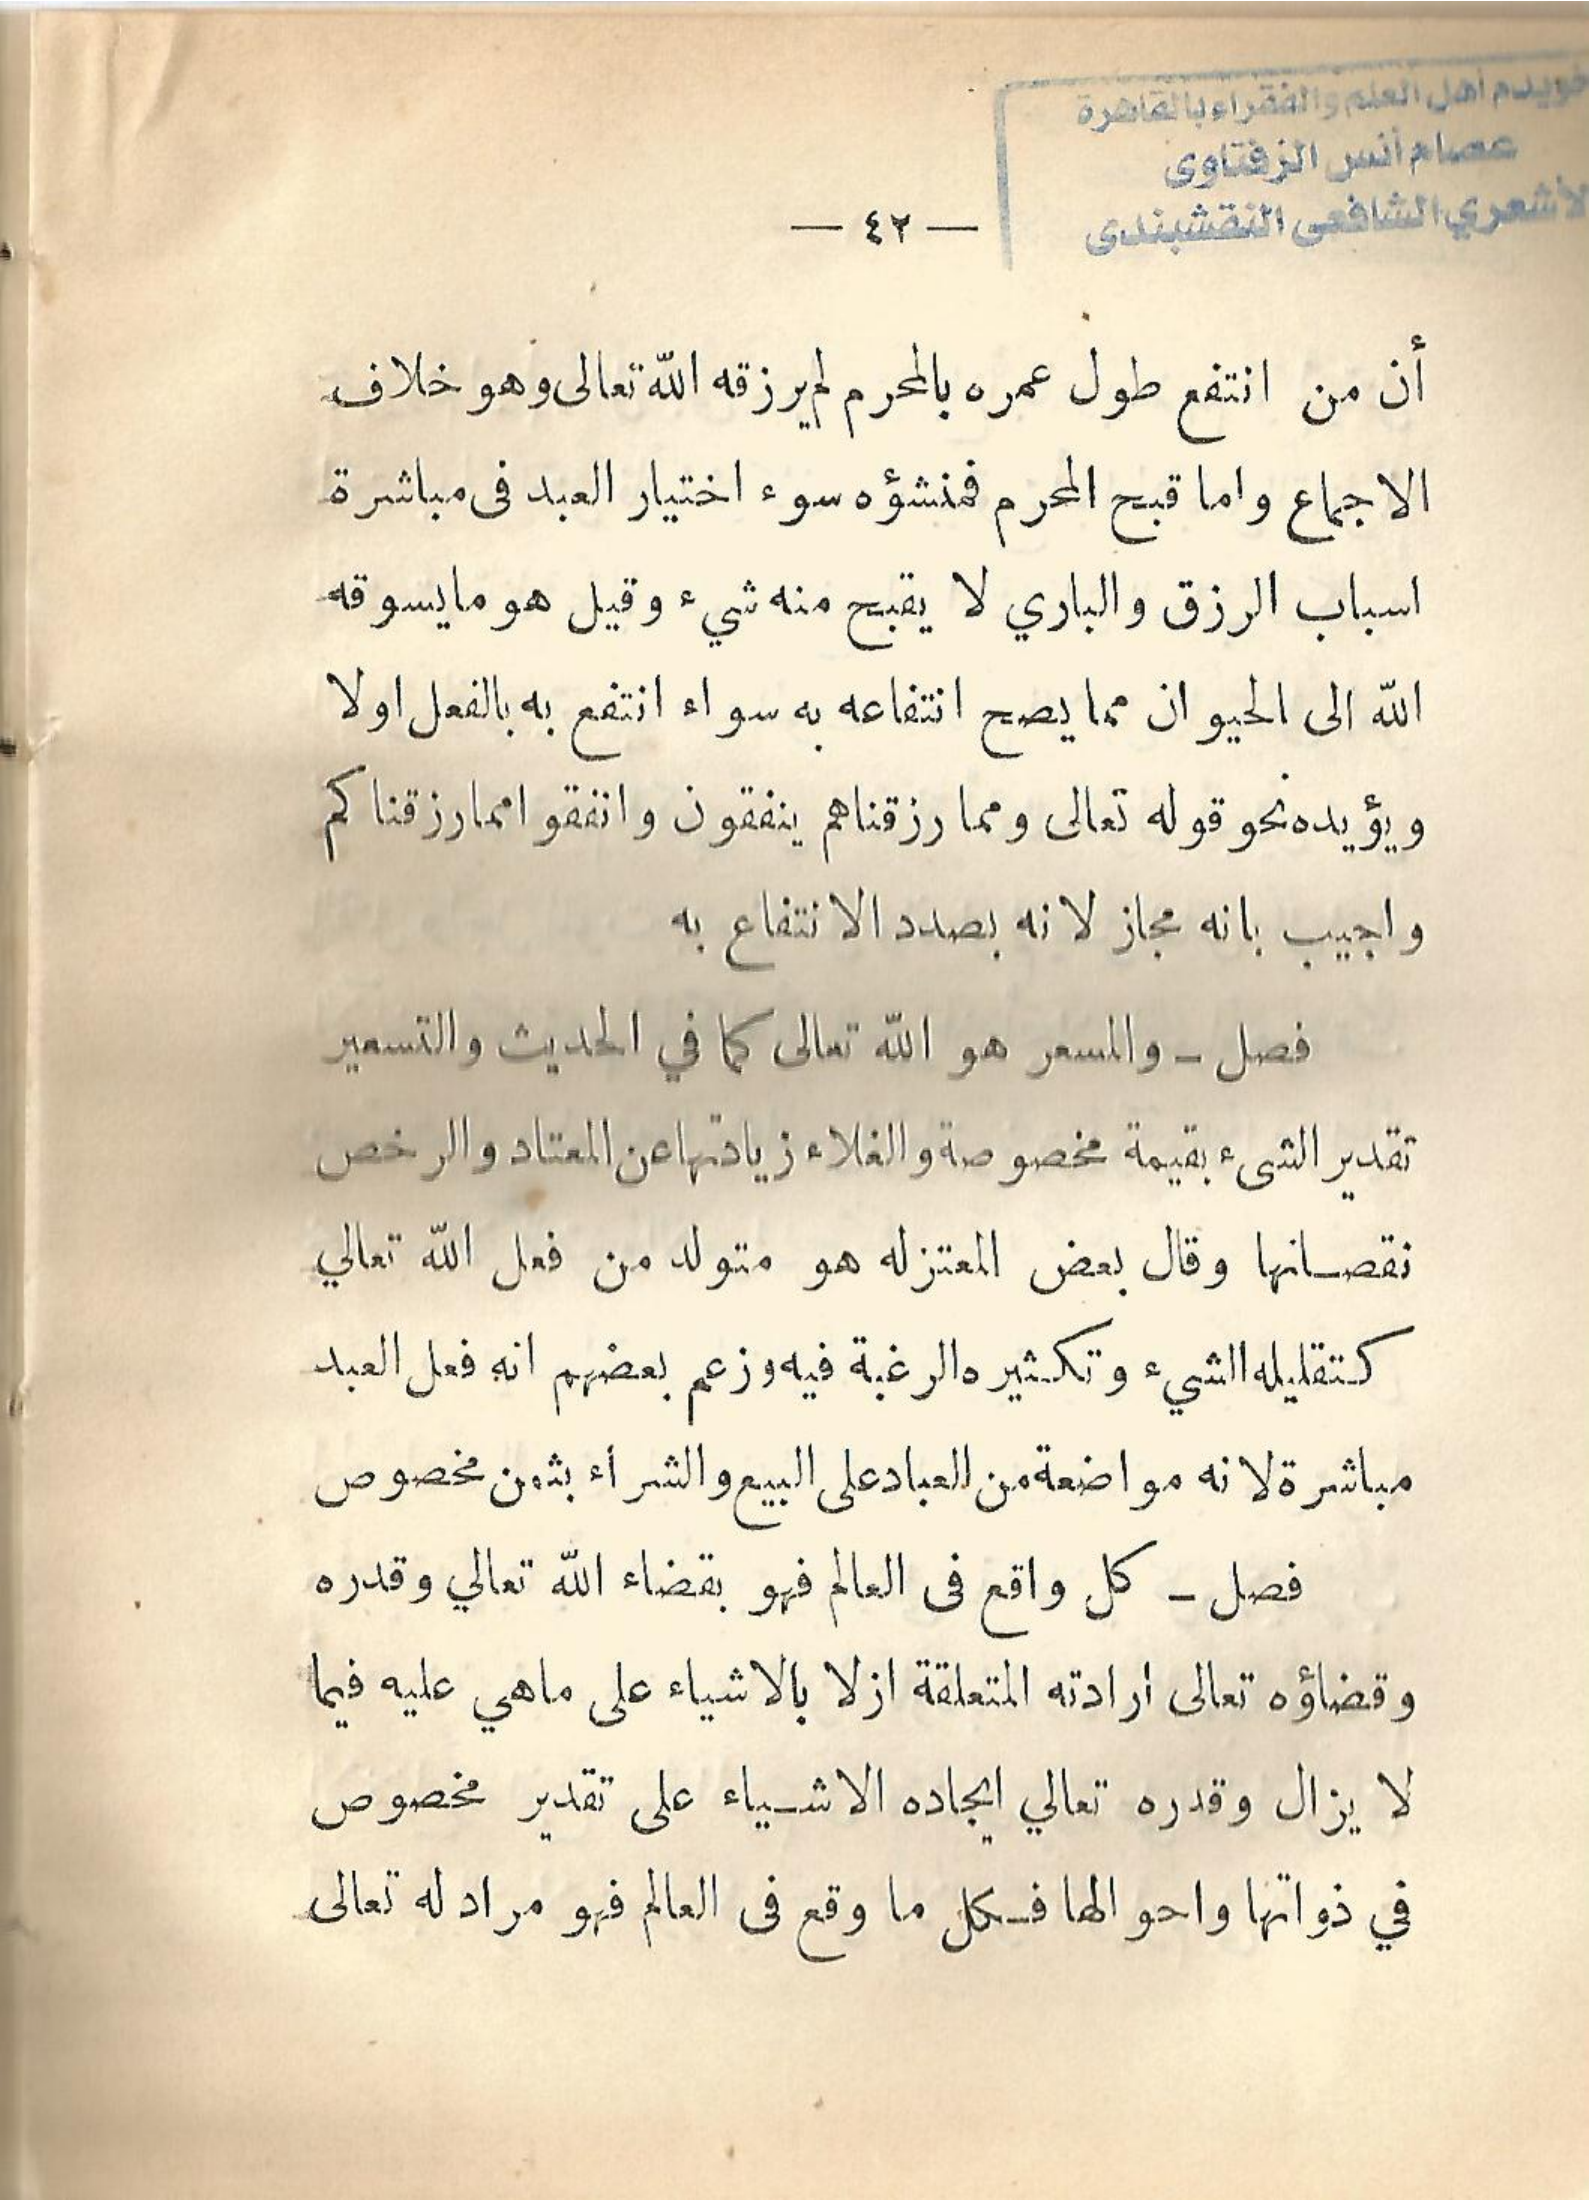 خويدم أهل العلم والفقراء بالقاهرة
عصام أنس الزفتاوى
الأشعري الشافعى النقشبندى
— ٤٢ —
أن من انتفع طول عمره بالمحرم لم يرزقه الله تعالى وهو خلاف
الاجماع واما قبح المحرم فمنشؤه سوء اختيار العبد فى مباشرة
اسباب الرزق والباري لا يقبح منه شيء وقيل هو ما يسوقه
الله الى الحيوان مما يصح انتفاعه به سواء انتفع به بالفعل اولا
ويؤيده نحو قوله تعالى ومما رزقناهم ينفقون وانفقوا مما رزقناكم
واجيب بانه مجاز لانه بصدد الانتفاع به
فصل – والمسعر هو الله تعالى كما في الحديث والتسعير
تقدير الشىء بقيمة مخصوصة والغلاء زيادتها عن المعتاد والرخص
نقصانها وقال بعض المعتزله هو متولد من فعل الله تعالي
كتقليله الشيء وتكثيره الرغبة فيه وزعم بعضهم انه فعل العبد
مباشرة لانه مواضعة من العباد على البيع والشرأء بثمن مخصوص
فصل – كل واقع فى العالم فهو بقضاء الله تعالي وقدره
وقضاؤه تعالى أرادته المتعلقة ازلا بالاشياء على ماهي عليه فيما
لا يزال وقدره تعالي ايجاده الاشياء على تقدير مخصوص
في ذواتها واحوالها فكل ما وقع فى العالم فهو مراد له تعالى